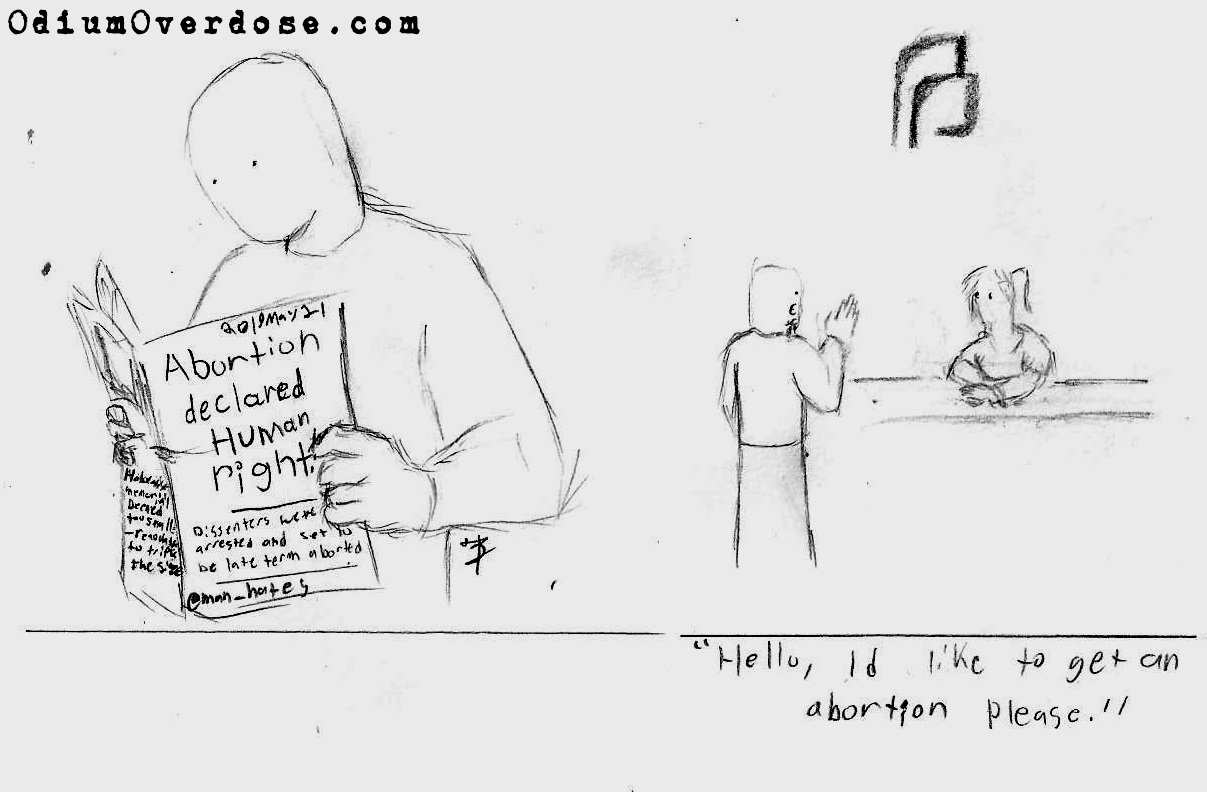 OdiumOverdose.com
2019 May 21
Abortion
declared
Human
right!
Dissenters were
arrested and set to
be late term aborted
@man_hates
memorial
Declared
too small
to triple
the size
"Hello, Id like to get an
abortion please."